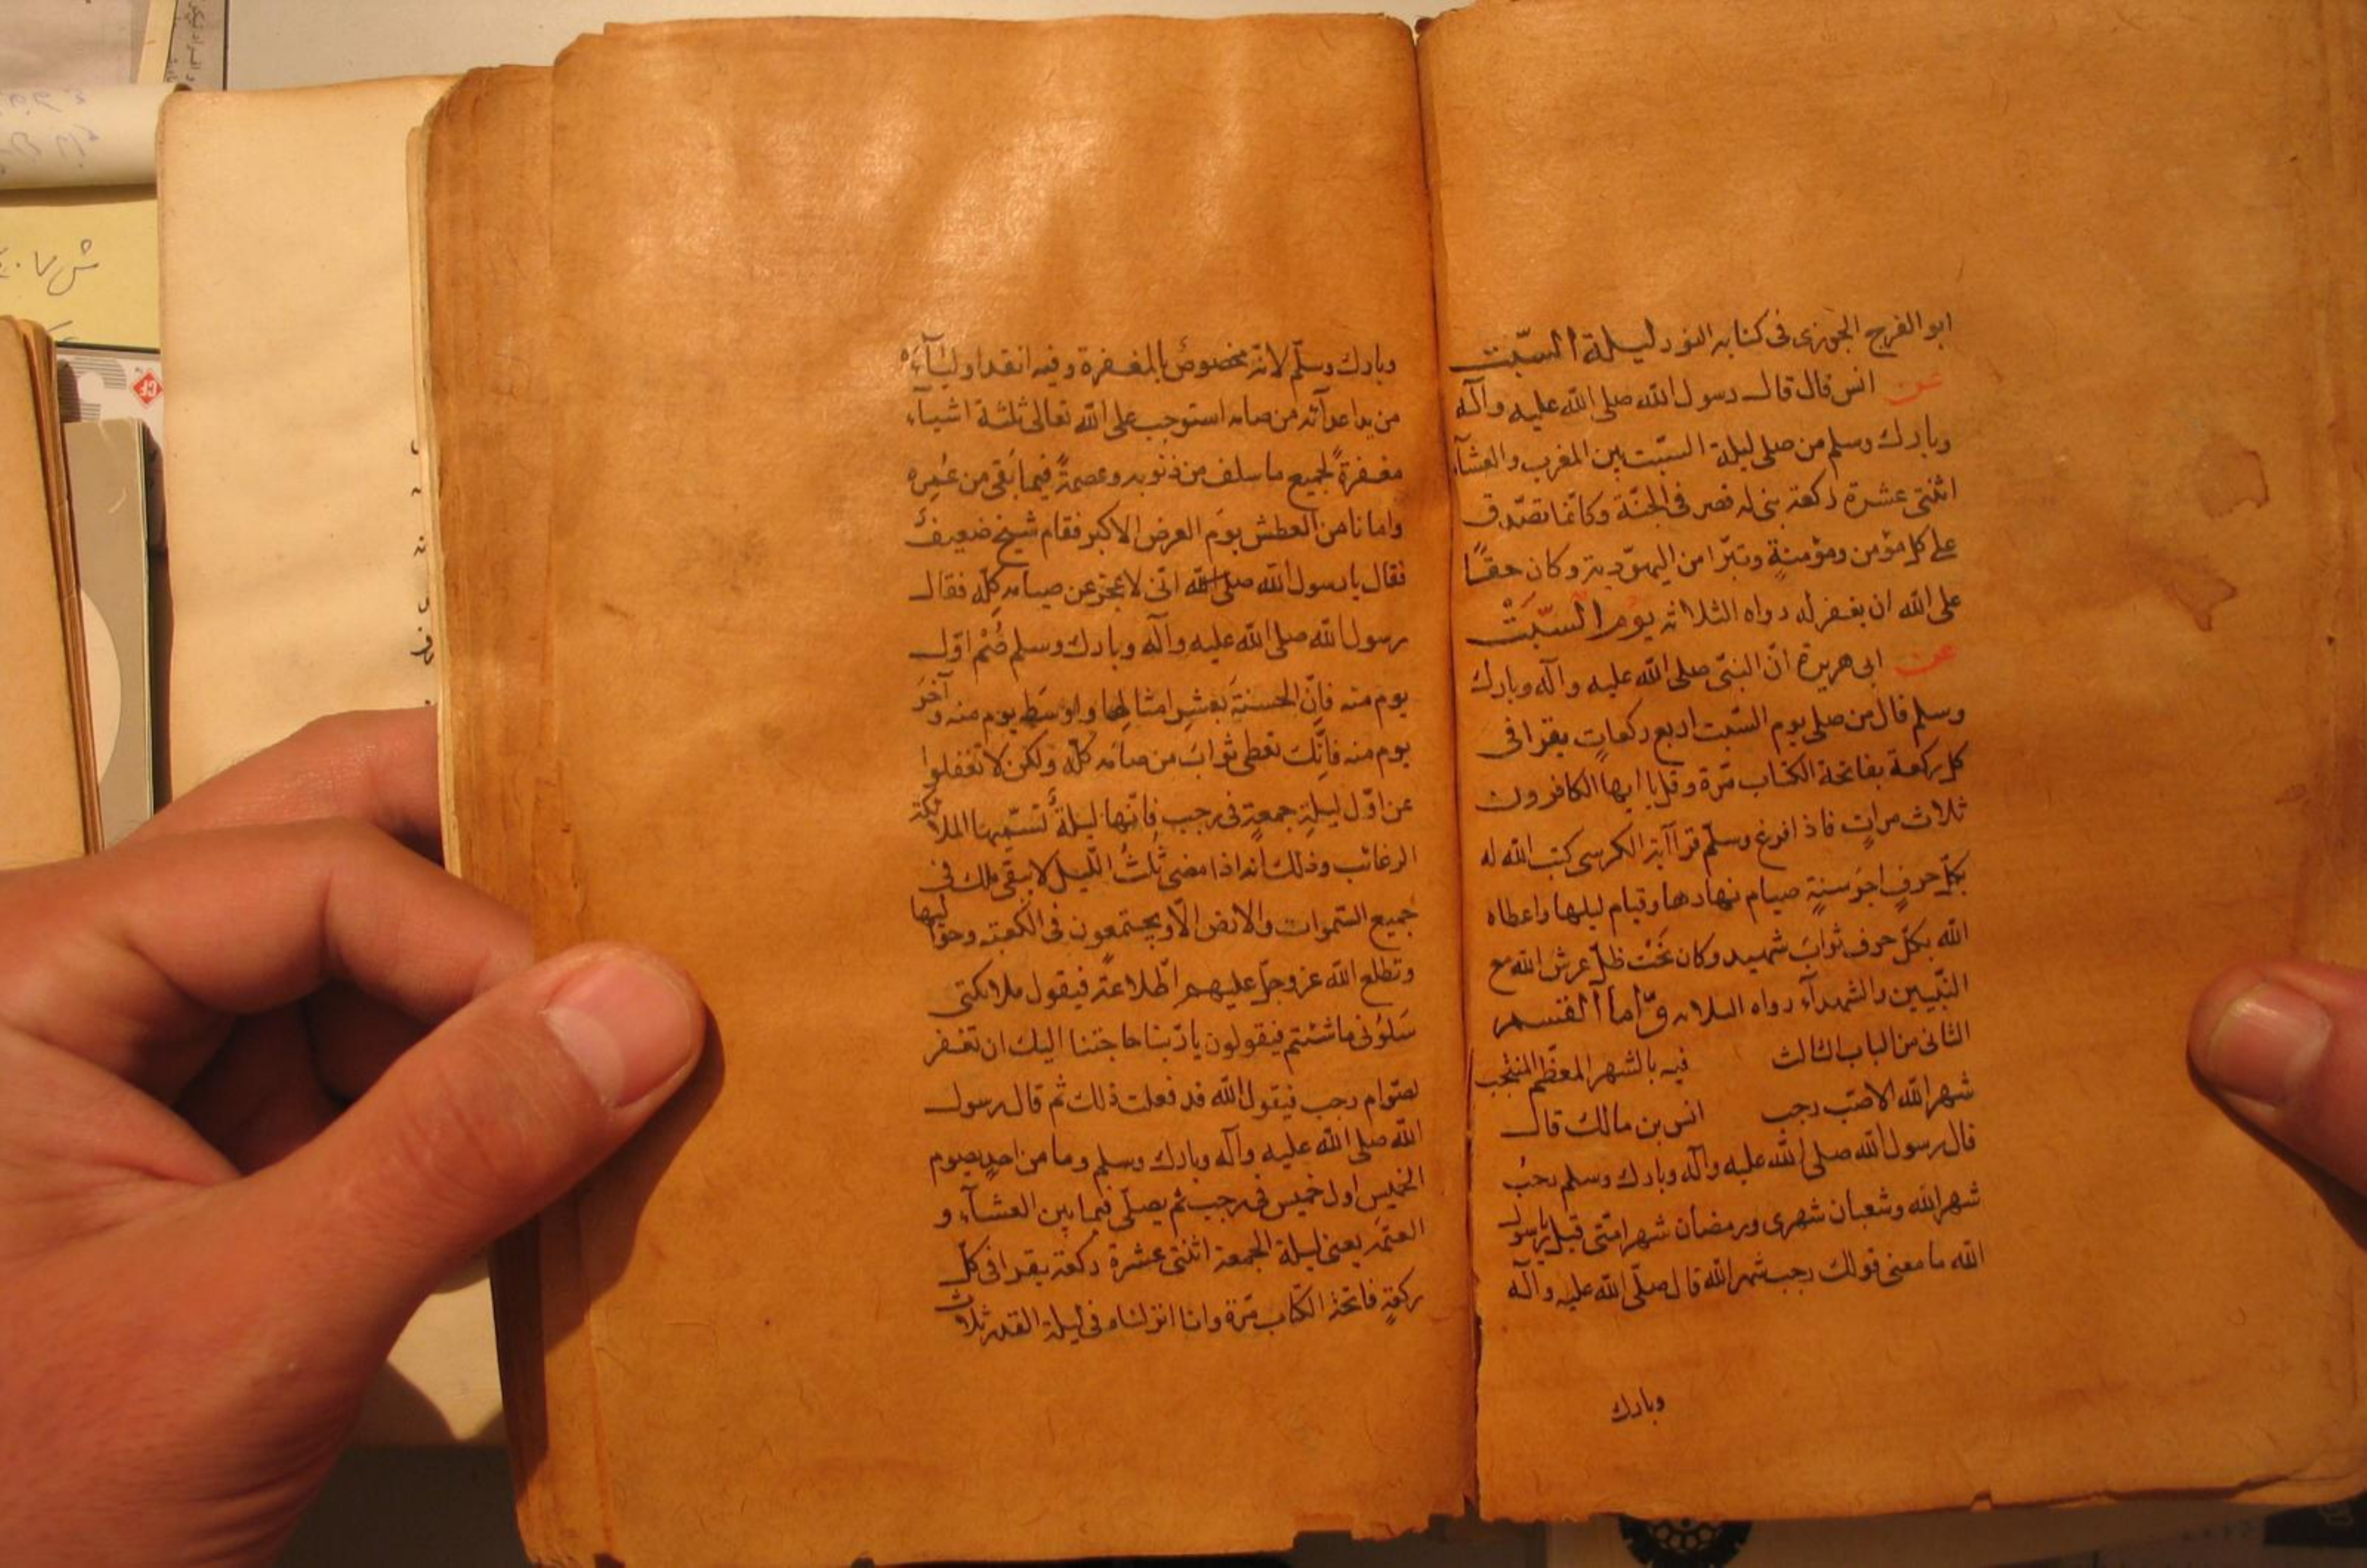 ابو الفرج الجوزى فى كتابه النور ليلة السّبت
عن انس قال قال رسول الله صلى الله عليه وآله
وبارك وسلم من صلى ليلة السّبت بين المغرب والعشآء
اثنتى عشرة ركعة بنى له قصر فى الجنّة وكانّما تصّدق
على كل مؤمن ومؤمنةٍ وتبرّا من اليهوّدية وكان حقًّا
على الله ان يغفر له رواه الثلاثه يوم السّبت
عن ابى هريرة انّ النبىّ صلى الله عليه وآله وبارك
وسلم قال من صلى يوم السّبت اربع ركعاتٍ يقرا فى
كل ركعة بفاتحة الكتاب مّرة وقل يا ايها الكافرون
ثلاث مراتٍ فاذا فرغ وسلّم قرا آية الكرسى كتب الله له
بكلّ حرفٍ اجرَ سنةٍ صيام نهارها وقيام ليلها واعطاه
الله بكلّ حرف ثوابَ شهيد وكان تَحْت ظلّ عرش الله مع
النّبيين والشهدآء رواه الثلاثه وّاما القسم
الثانى من الباب الثالث فيه بالشهر المعظّم المنتجب
شهر الله الاصّب رجب انس بن مالك قال
قال رسول الله صلى الله عليه وآله وبارك وسلم رجبُ
شهر الله وشعبان شهرى ورمضان شهر امّتى قيل يا رسول
الله ما معنى قولك رجب شهر الله قال صلّى الله عليه وآله
وبارك
وبارك وسلّم لانّه مخصوصٌ بالمغفرة وفيه انقد اوليٰآءَه
من يد اعدآئه من صامه استوجب على الله تعالى ثلثة اشيآء
مغفرةً لجميع ما سلف من ذنوبه وعصمةً فيما بَقى من عُمِره
وامانا من العطش يوَم العرض الاكبر فقام شيخ ضعيفٌ
فقال يا رسول الله صلى الله انّى لاعجز عن صيامه كلّه فقال
رسول الله صلى الله عليه وآله وبارك وسلم صُمْ اوّل
يوم منه فاِنّ الحسنةَ بعَشرِ امثالِها واوسَطِ يوم منه وآخَر
يوم منه فاِنِّكَ تعَطى ثوابَ من صامَه كلّه ولكن لا تغفلوا
عن اوّل ليلةِ جمعةٍ فى رجب فِانّها ليلةُ تسّميها الملائكة
الرغائب وذلك انه اذا مضى ثُلثُ الّليل لا يبقى ملك فى
جميع السّموات والارض الّا ويجتمعون فى الكعبة وحوّاليها
وتطلع الله عز وجلّ عليهم اطّلاعةً فيقول ملائكتى
سَلوُنى ما شئتم فيقولون يا رّبنا حاجتنا اليك ان تغفر
لصّوام رجب فيقول الله قد فعلت ذلك ثم قال رسول
الله صلى الله عليه وآله وبارك وسلم وما من احدٍ يصوم
الخميس اول خميس فى رجب ثم يصلّى فيما بين العشآء و
العتمَة يعنى ليلة الجمعة اثنتى عشرة ركعة يقرا فى كلّ
ركعةٍ فاتحة الكتاب مّرة وانا انزلناه فى ليلة القدر ثلاث